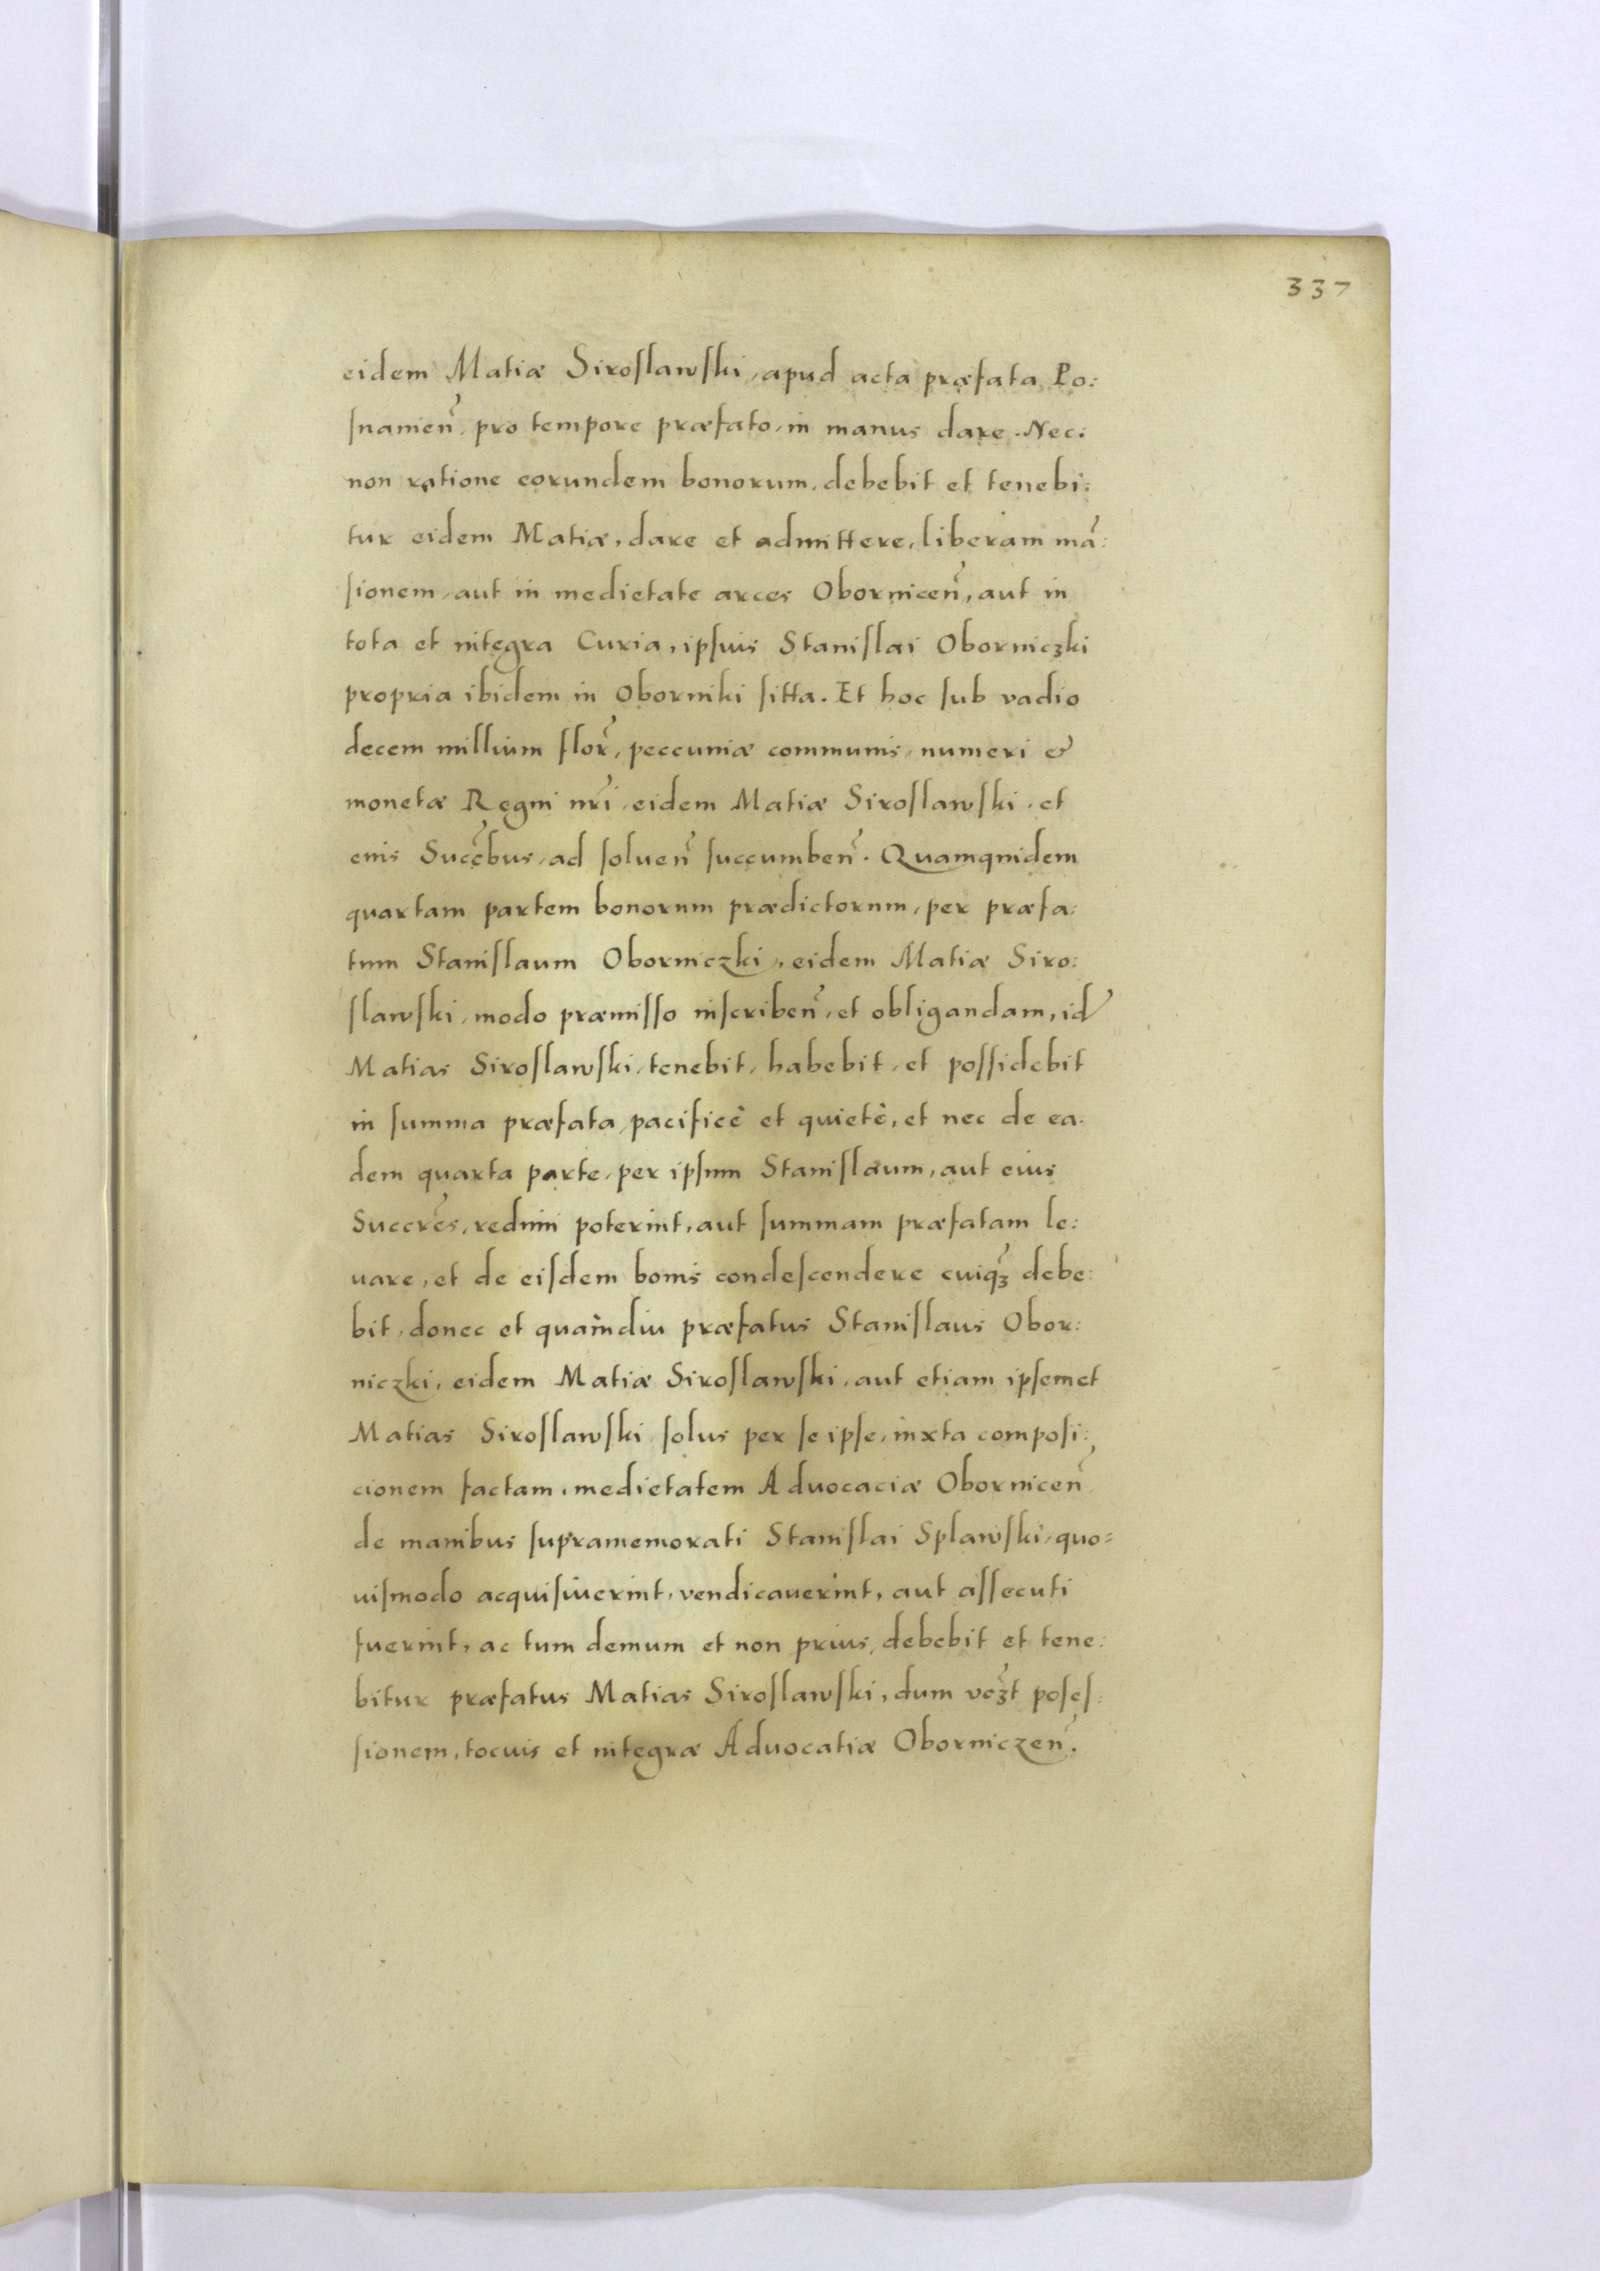 337
eidem Matiæ Siroslawski, apud acta præfata Po:
snanien̉, pro tempore præfato, in manus dare. Nec:
non ratione eorundem bonorum, debebit et tenebi:
tur eidem Matiæ, dare et admittere, liberam mã:
sionem, aut in medietate arces Obornicen̉, aut in
tota et integra Curia, ipsius Stanislai Oborniczki
propria ibidem in Oborniki sitta. Et hoc sub vadio
decem millium flor̉, peccuniæ communis, numeri &
monetæ Regni nr̃i, eidem Matiæ Siroslawski, et
eius Succ̃bus, ad soluen̉ succumben̉. Quamquidem
quartam partem bonorum prædictorum, per præfa:
tum Stanislaum Oborniczki, eidem Matiæ Siro:
slawski, modo præmisso inscriben̉, et obligandam, id
Matias Siroslawski, tenebit, habebit, et possidebit
in summa præfata, pacificè et quietè, et nec de ea:
dem quarta parte, per ipsum Stanislaum, aut eius
Succr̃es, redimi poterint, aut summam præfatam le:
uare, et de eisdem bonis condescendere cuiqꝫ debe:
bit, donec et quamdiu præfatus Stanislaus Obor:
niczki, eidem Matiæ Siroslawski, aut etiam ipsemet
Matias Siroslawski solus per se ipse, iuxta composi:
cionem factam, medietatem Aduocaciæ Obornicen̉
de manibus supramemorati Stanislai Splawski, quo=
uismodo acquisiuerint, vendicauerint, aut assecuti
fuerint, ac tum demum et non prius, debebit et tene:
bitur præfatus Matias Siroslawski, dum veꝫ̃t poses:
sionem, tocuis et integræ Aduocatiæ Oborniczen̉.